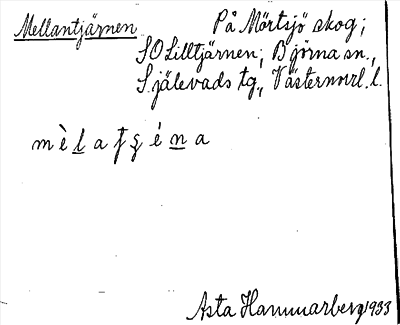 Mellantjärnen På Mörtsjö skog;
SO Lilltjärnen; Björna sn.,
Själevads tg., Västernorrl. l.
mèlatʂéna
Asta Hammarberg 1933